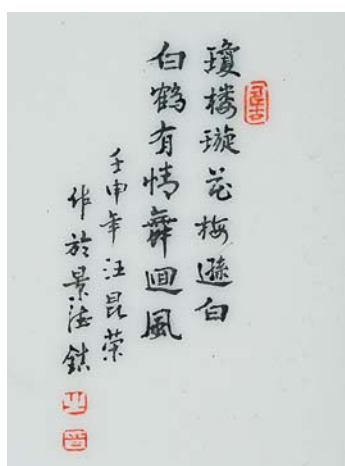 瓊楼璇花梅遜白
白鶴有情舞迴風
壬申年汪昆荣
作於景德鎮